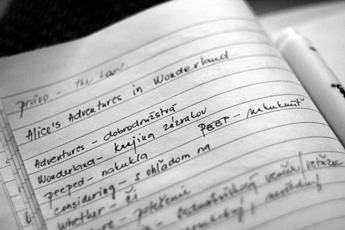 právo - the law
Alice's Adventures in Wonderland
Adventures - dobrodružstvá
Wonderland - krajina zázrakov
peeped - nakukla PEEP - nakuknúť
considering - s ohľadom na
whether - či
- potešenie